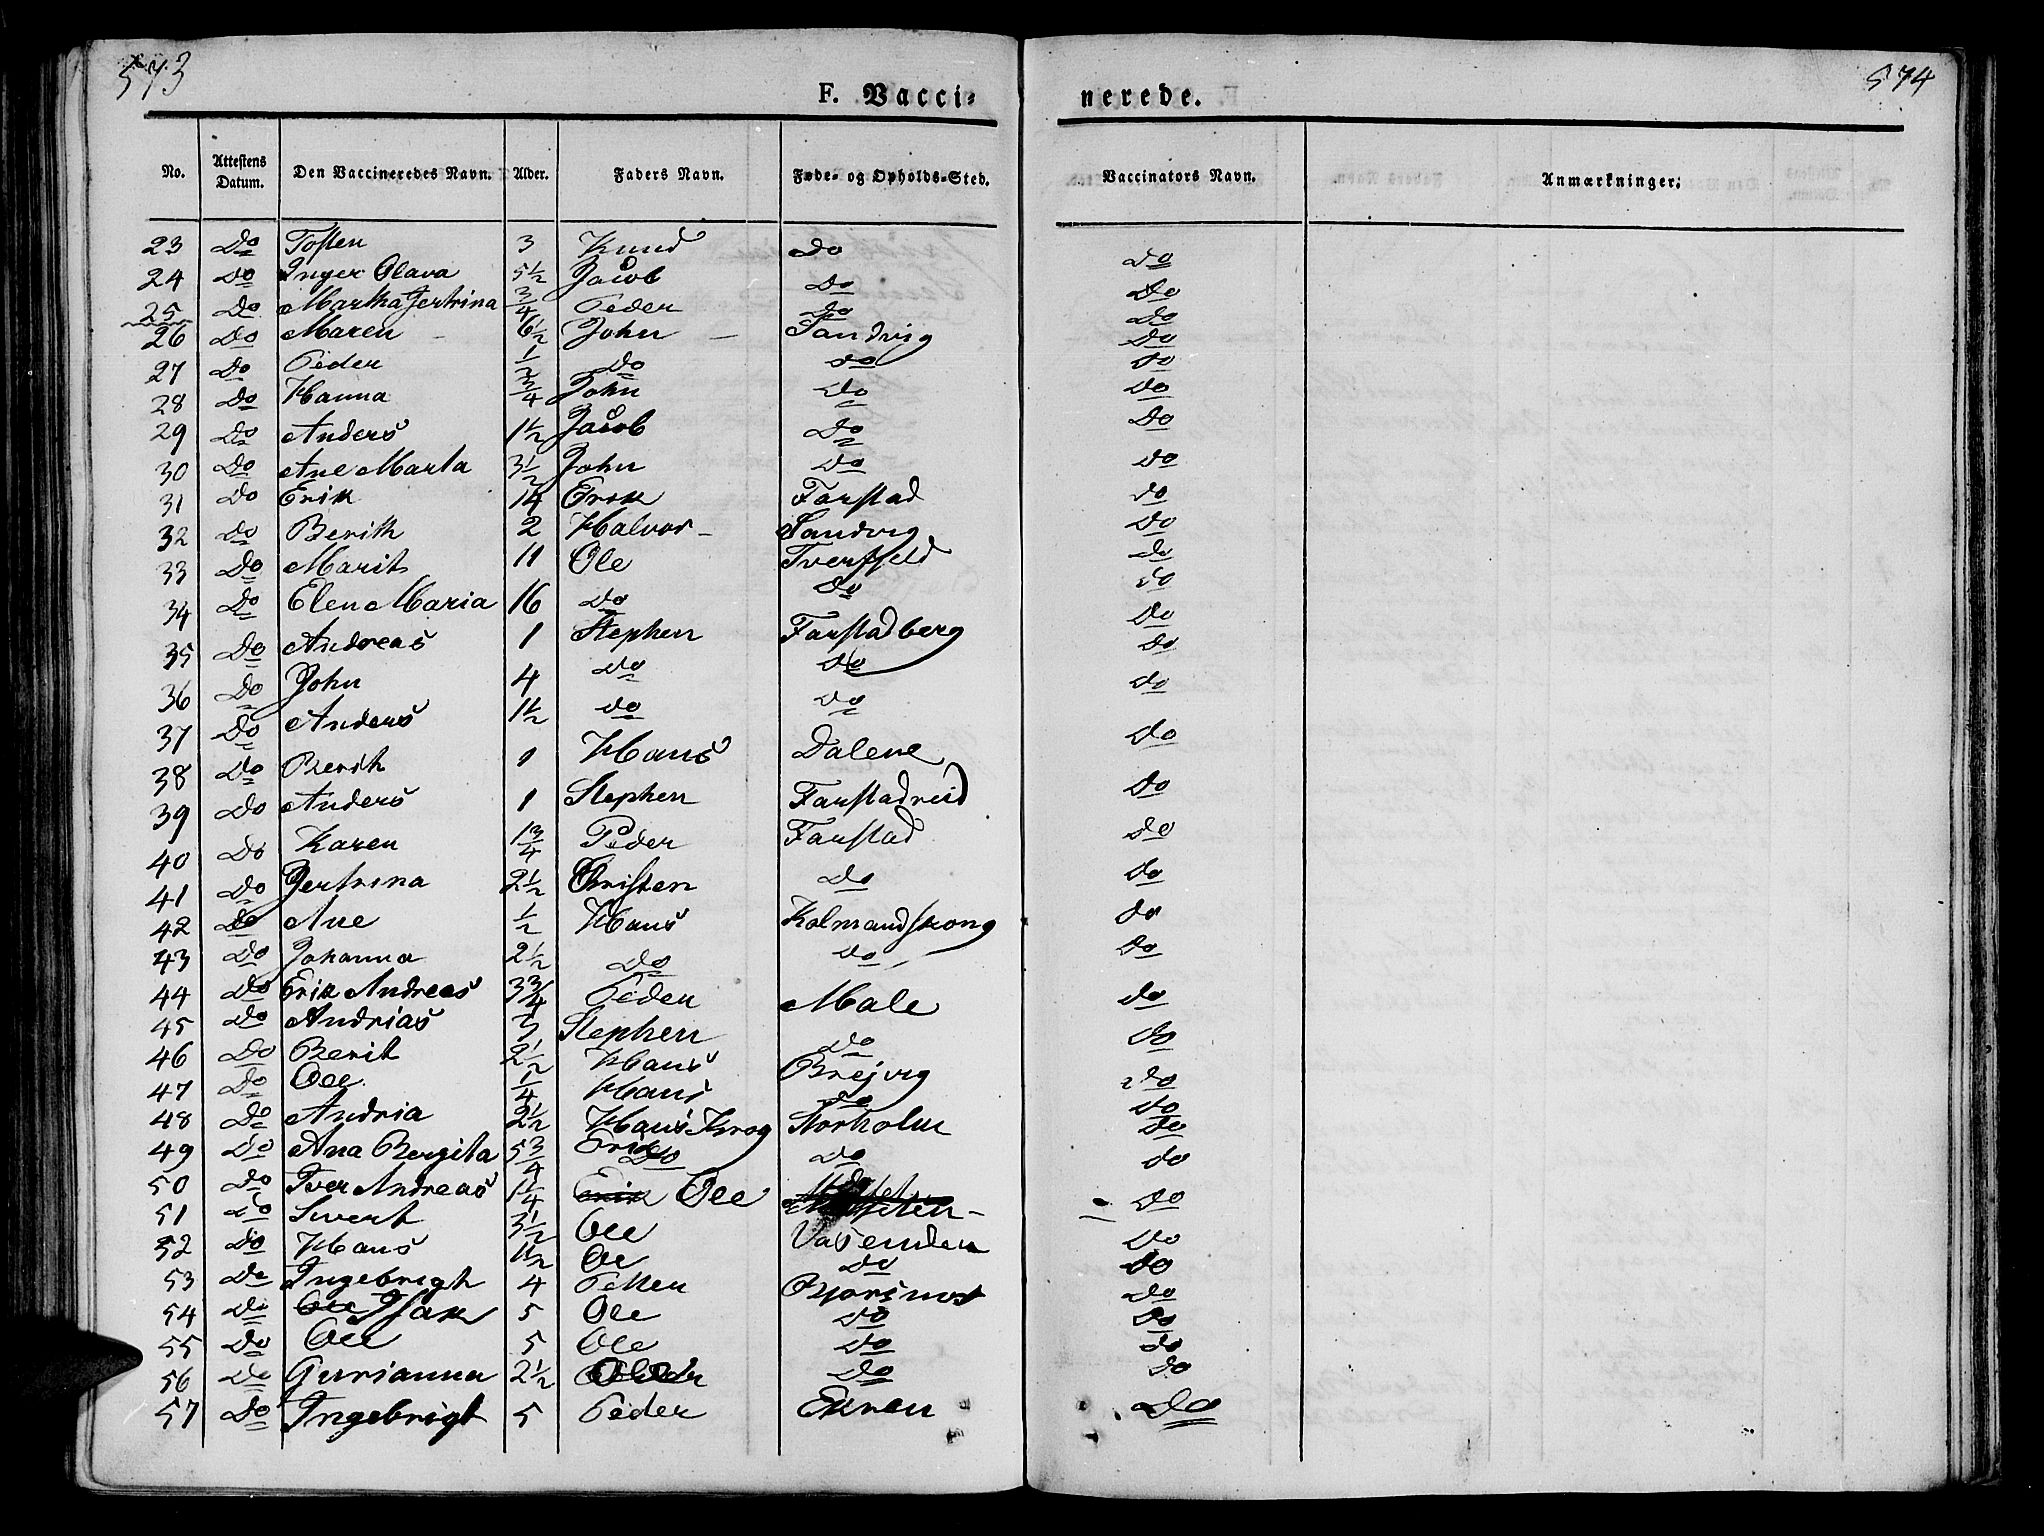 573
574
F. Vacci-
nerede.
No. Attestens Datum. Den Vaccineredes Navn. Alder. Faders Navn. Føde- og Opholds-Sted. Vaccinators Navn. Anmærkninger.
23 Do Tosten 3 Knud Do Do
24 Do Inger Olava 5½ Jacob Do Do
25 Do Martha Jertrina ¾ Peder Do Do
26 Do Maren 6½ John – Sandvig Do
27 Do Peder ½ Do Do Do
28 Do Hanna ¾ John Do Do
29 Do Anders 1½ Jacob Do Do
30 Do Ane Marta 3½ John Do Do
31 Do Erik 14 Erik Farstad Do
32 Do Berith 2 Halvor – Sandvig Do
33 Do Marit 11 Ole Tverfjeld Do
34 Do Elen Maria 16 Do Do Do
35 Do Andreas 1 Stephen Farstadberg Do
36 Do John 4 Do Do Do
37 Do Anders 1½ Do Do Do
38 Do Berith 1 Hans Dalene Do
39 Do Anders 1 Stephen Farstadreid Do
40 Do Karen 1¾ Peder Farstad Do
41 Do Jertrina 2½ Christen Do Do
42 Do Ane ½ Hans Kolmandskong Do
43 Do Johanna 2½ Do Do Do
44 Do Erik Andreas 3¾ Peder Male Do
45 Do Andrias Stephen Do Do
46 Do Berit 2½ Hans Brejvig Do
47 Do Ole ¼ Hans Do Do
48 Do Andria 2½ Hans Krog Storholm Do
49 Do Ana Bergita 5¾ Erik Do Do Do
50 Do Iver Andreas 1¼ Erik Ole Do
51 Do Sivert 3½ Ole Vasenden Do
52 Do Hans 1½ Ole Do Do
53 Do Ingebrigt 4 Petter Do
54 Do Ole Isak 5 Ole Do Do
55 Do Ole 5 Ole Do Do
56 Do Gurianna 2½ Do Do
57 Do Ingebrigt 5 Peder Ekren Do